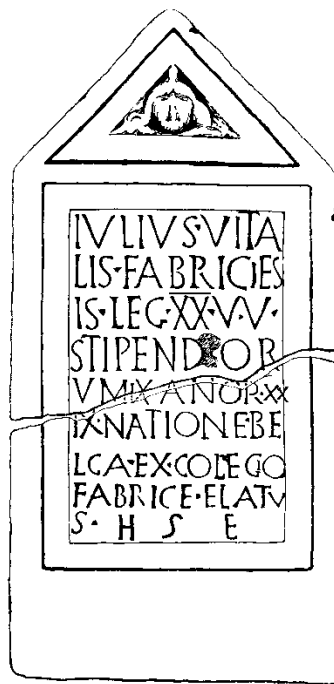 IVLIVS·VITA
LIS·FABRICIES
IS·LEG·XX·V·V·
STIPENDIOR
VM IX ANOR·XX
IX·NATIONE BE
LGA·EX·COLEGO
FABRICE·ELATV
S· H S E